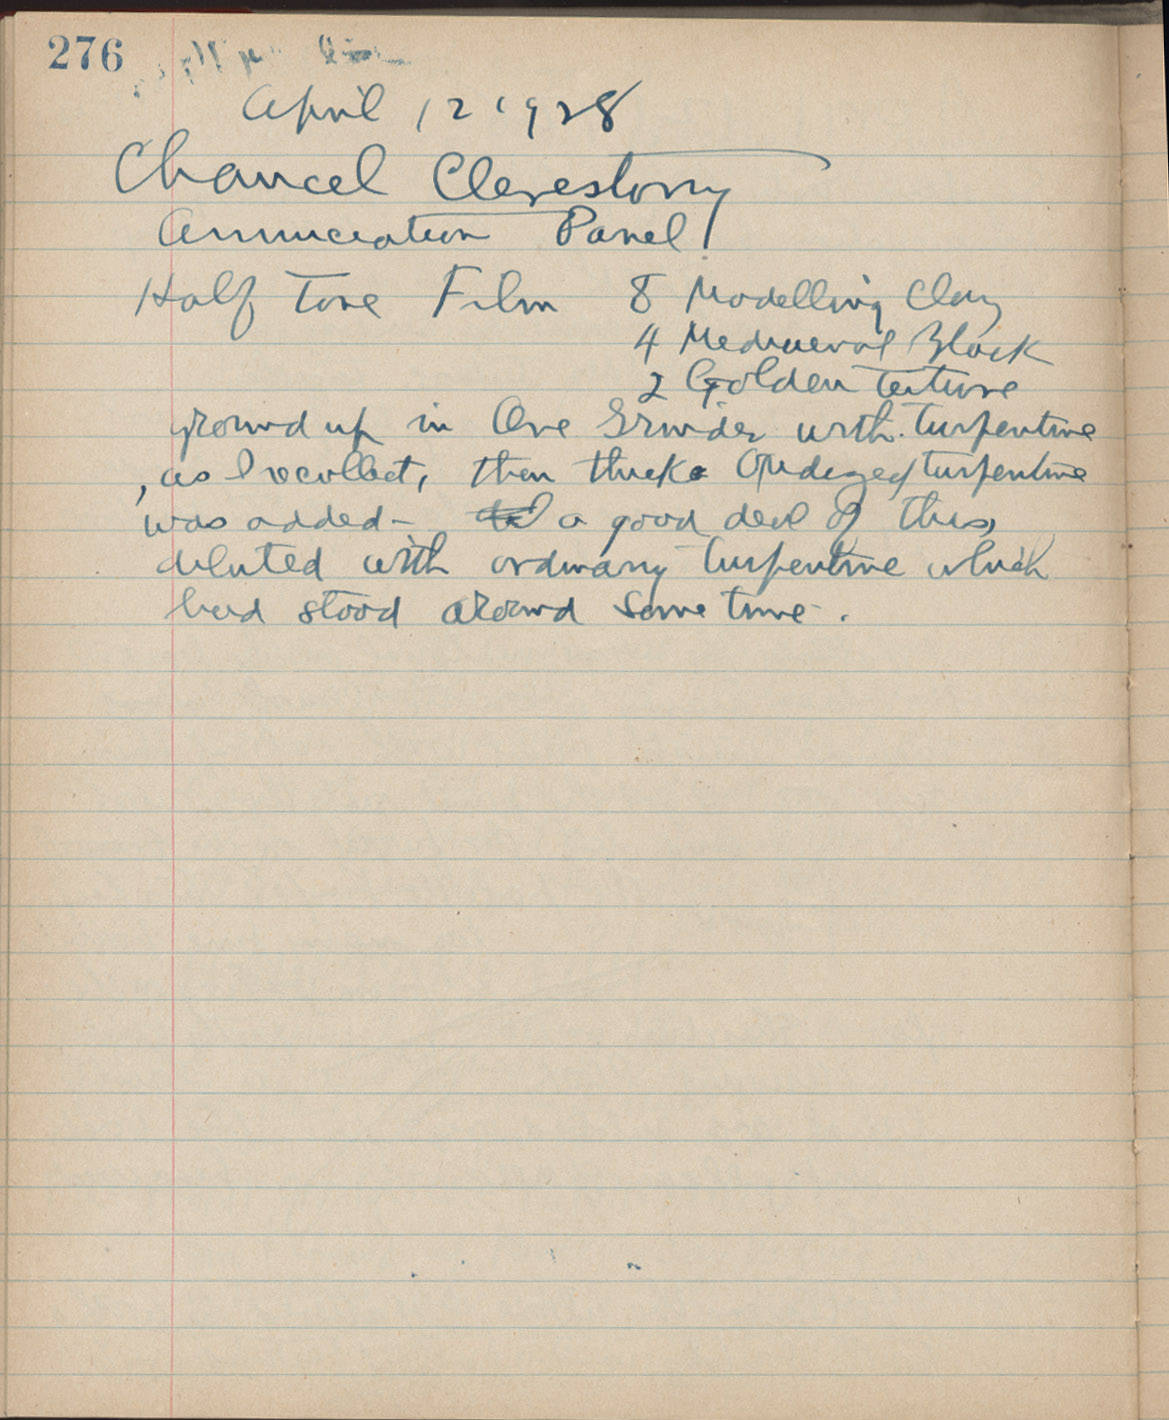 276
April 12 1928
Chancel Clerestory
Annunciation Panel
Half Tone Film 8 Modelling Clay
4 Mediaeval Black
2 Golden
ground up in One Grinder with turpentine
, as I recollect, then thick Oxidized turpentine
was added - a good deal of this,
diluted with ordinary turpentine which
had stood around some time.